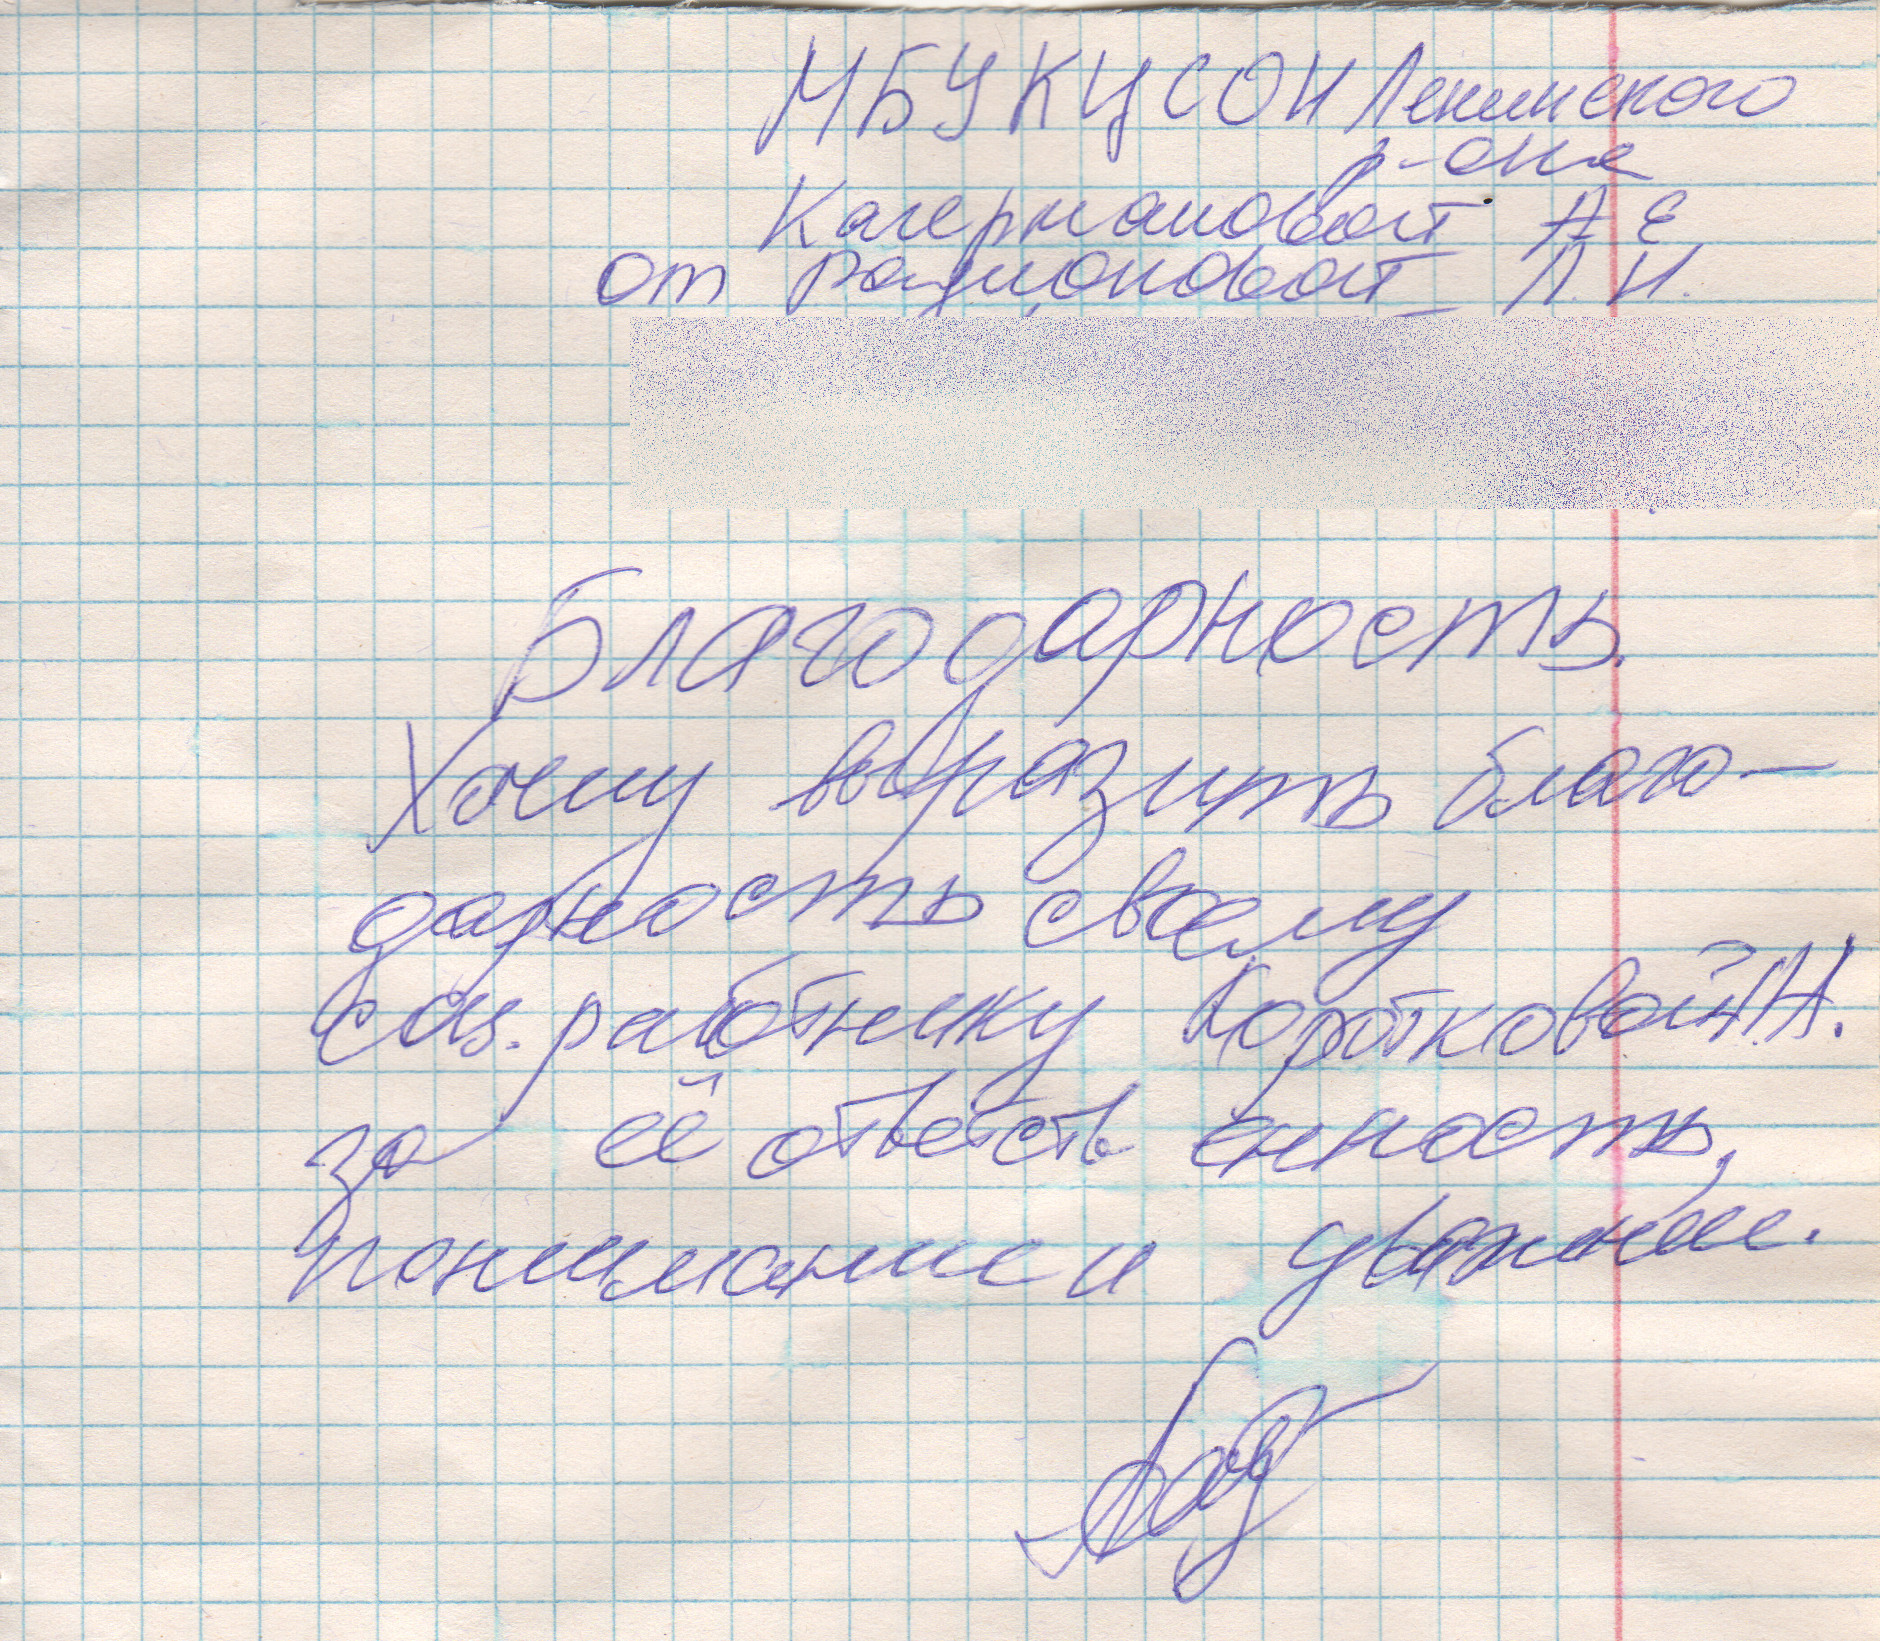 МБУ КЦСОН Ленинского
р-она
Кагермановой А Е
от Л. И.
Благодарность.
Хочу выразить благо-
дарность своему
соц. работнику Коротковой Н.А.
за её ответственность,
понимание и уважение.